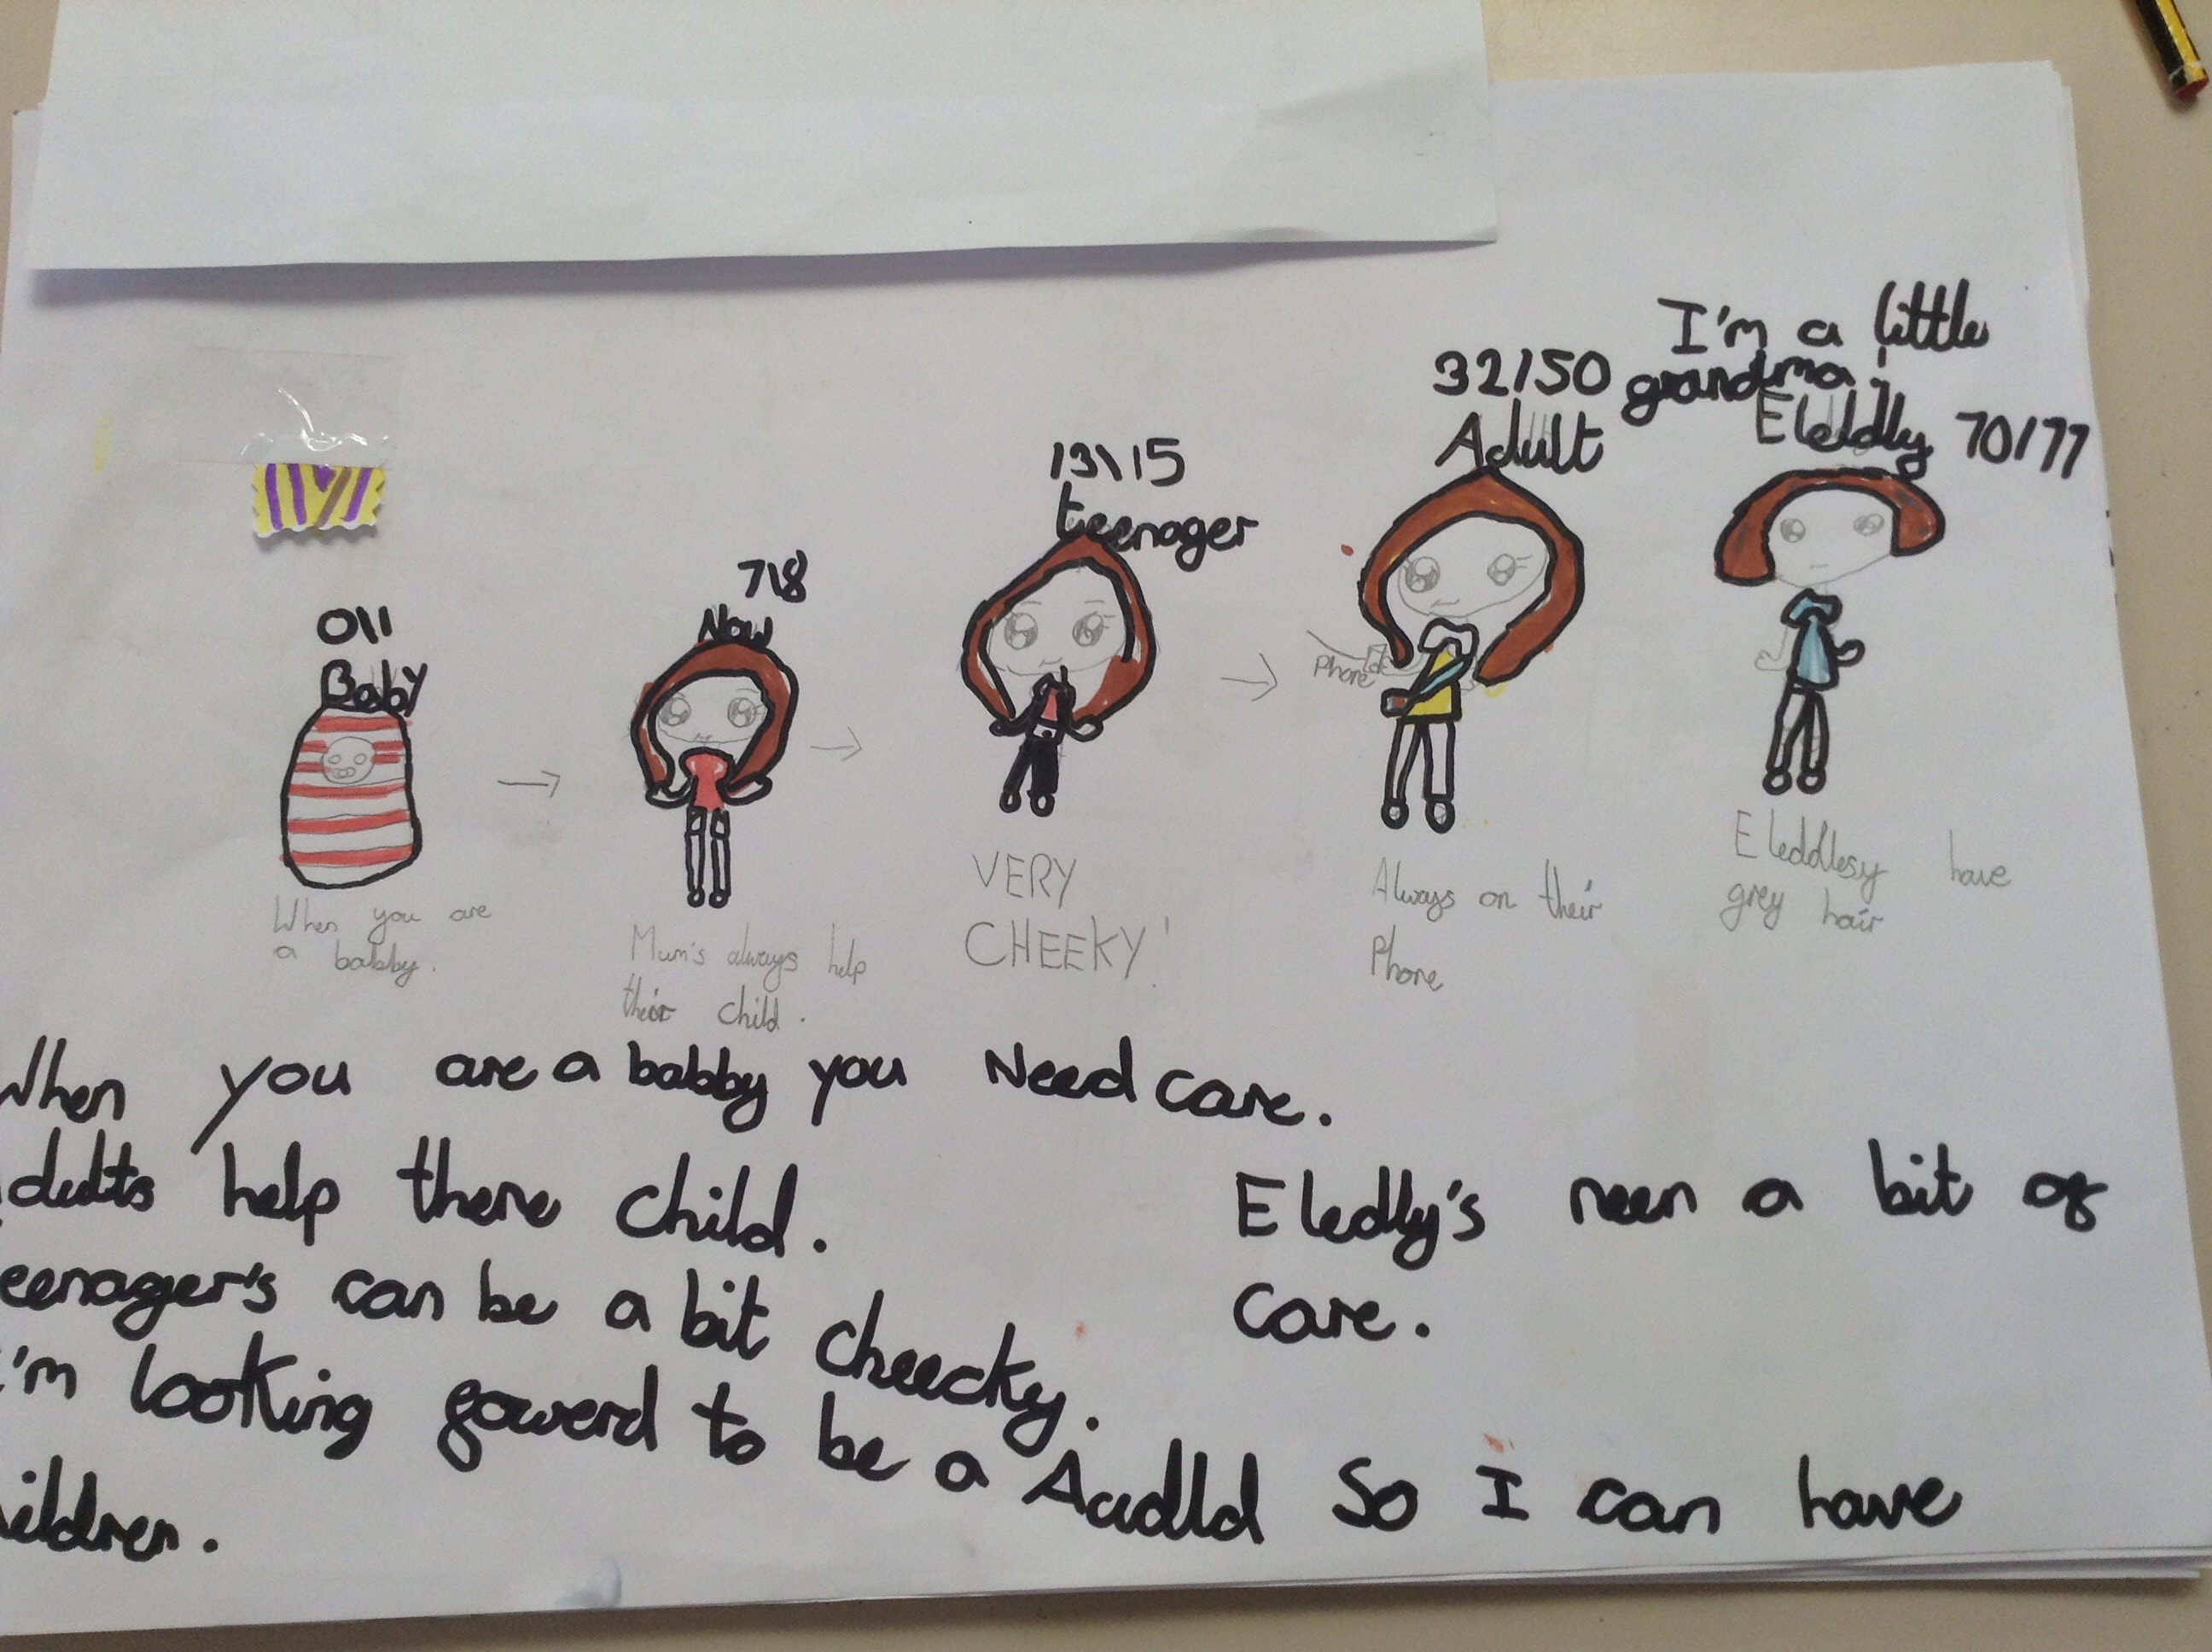 I'm a little
grandma!
32/50
Adult
Eleldly 70/77
13\15
teenager
7\8
Now
0\1
Baby
Phone
When you are
a babby.
Mum's always help
their child.
VERY
CHEEKY!
Always on their
Phone
Eleddlesy have
grey hair
When you are a babby you Need care.
Adults help there child.
Eledly's neen a bit of
care.
eenager's can be a bit cheecky.
I'm looking fowerd to be a Aadlld So I can have
hildren.